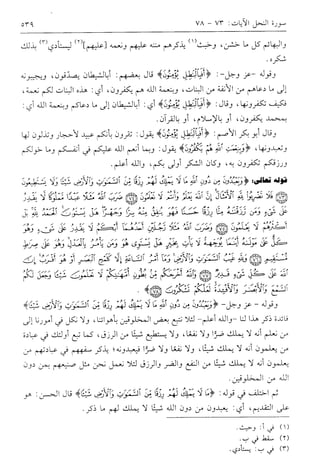 سورة النحل الآيات: ٧٣ - ٧٨ ٥٣٩
والبهائم كل ما خشن، وخبث(١) يذكرهم مننه عليهم ونعمه [عليهم](٢) ليستأدي(٣) بذلك
شكره.
وقوله - عز وجل-: ﴿أَفَبِالْبَاطِلِ يُؤْمِنُونَ﴾ قال بعضهم: أبالشيطان يصدّقون، ويجيبونه
إلى ما دعاهم من الأنفة من البنات، وبنعمة الله هم يكفرون، أي: هذه البنات لكم نعمة،
فكيف تكفرونها، وقال: ﴿أَفَبِالْبَاطِلِ يُؤْمِنُونَ﴾ أي: أبالشيطان إلى ما دعاكم وبنعمة الله أي:
بمحمد يكفرون، أو بالإسلام، أو بالقرآن.
وقال أبو بكر الأصم: ﴿أَفَبِالْبَاطِلِ يُؤْمِنُونَ﴾ يقول: تقرون بأنكم عبيد لأحجار وتذلون لها
وتعبدونها، ﴿وَبِنِعْمَتِ اللَّهِ هُمْ يَكْفُرُونَ﴾ يقول: وبما أنعم الله عليكم في أنفسكم وما خولكم
ورزقكم تكفرون به، وكان الشكر أولى بكم، والله أعلم.
قوله تعالى: ﴿وَيَعْبُدُونَ مِن دُونِ اللَّهِ مَا لَا يَمْلِكُ لَهُمْ رِزْقًا مِّنَ السَّمَاوَاتِ وَالْأَرْضِ شَيْئًا وَلَا يَسْتَطِيعُونَ
﴿٧٣﴾ فَلَا تَضْرِبُوا لِلَّهِ الْأَمْثَالَ إِنَّ اللَّهَ يَعْلَمُ وَأَنتُمْ لَا تَعْلَمُونَ ﴿٧٤﴾ ضَرَبَ اللَّهُ مَثَلًا عَبْدًا مَّمْلُوكًا لَّا يَقْدِرُ
عَلَى شَيْءٍ وَمَن رَّزَقْنَاهُ مِنَّا رِزْقًا حَسَنًا فَهُوَ يُنفِقُ مِنْهُ سِرًّا وَجَهْرًا هَلْ يَسْتَوُونَ الْحَمْدُ لِلَّهِ بَلْ
أَكْثَرُهُمْ لَا يَعْلَمُونَ ﴿٧٥﴾ وَضَرَبَ اللَّهُ مَثَلًا رَّجُلَيْنِ أَحَدُهُمَا أَبْكَمُ لَا يَقْدِرُ عَلَى شَيْءٍ وَهُوَ
كَلٌّ عَلَى مَوْلَاهُ أَيْنَمَا يُوَجِّههُّ لَا يَأْتِ بِخَيْرٍ هَلْ يَسْتَوِي هُوَ وَمَن يَأْمُرُ بِالْعَدْلِ وَهُوَ عَلَى صِرَاطٍ
مُّسْتَقِيمٍ ﴿٧٦﴾ وَلِلَّهِ غَيْبُ السَّمَاوَاتِ وَالْأَرْضِ وَمَا أَمْرُ السَّاعَةِ إِلَّا كَلَمْحِ الْبَصَرِ أَوْ هُوَ أَقْرَبُ إِنَّ
اللَّهَ عَلَى كُلِّ شَيْءٍ قَدِيرٌ ﴿٧٧﴾ وَاللَّهُ أَخْرَجَكُم مِّن بُطُونِ أُمَّهَاتِكُمْ لَا تَعْلَمُونَ شَيْئًا وَجَعَلَ لَكُمُ
السَّمْعَ وَالْأَبْصَارَ وَالْأَفْئِدَةَ لَعَلَّكُمْ تَشْكُرُونَ ﴿٧٨﴾﴾.
وقوله - عز وجل -: ﴿وَيَعْبُدُونَ مِن دُونِ اللَّهِ مَا لَا يَمْلِكُ لَهُمْ رِزْقًا مِّنَ السَّمَاوَاتِ وَالْأَرْضِ شَيْئًا﴾
فائدة ذكر هذا لنا -والله أعلم- لئلا نتبع بعض المخلوقين بأهوائنا، ولا نكل في أمورنا إلى
من نعلم أنه لا يملك ضرًّا ولا نفعًا، ولا يستطيع شيئًا من الرزق، كما تبع أولئك في عبادة
من يعلمون أنه لا يملك شيئًا، ولا نفعًا ولا ضرًّا فيعبدونه؛ يذكر سفههم في عبادتهم من
يعلمون أنه لا يملك شيئًا من النفع والضر والرزق لئلا نعمل نحن مثل صنيعهم بمن دون
الله من المخلوقين.
ثم اختلف في قوله: ﴿مَا لَا يَمْلِكُ لَهُمْ رِزْقًا مِّنَ السَّمَاوَاتِ وَالْأَرْضِ شَيْئًا﴾ قال الحسن: هو
على التقديم، أي: يعبدون من دون الله شيئًا لا يملك لهم ما ذكر.
(١) في أ: وحيث.
(٢) سقط في ب.
(٣) في ب: يستأدي.